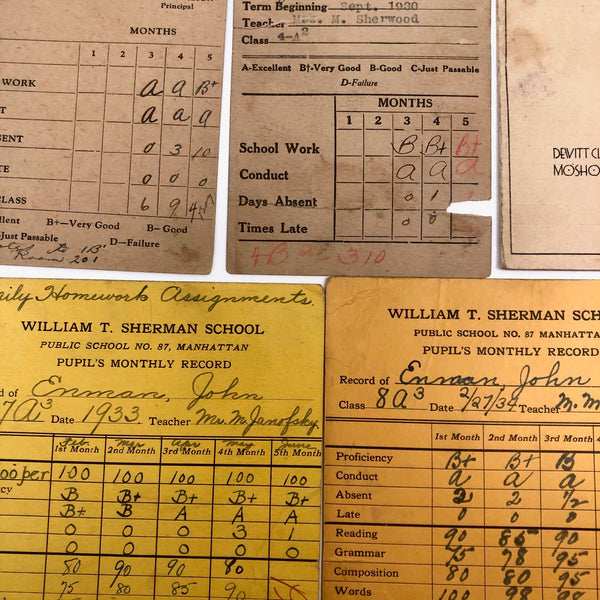 Principal
MONTHS
1 2 3 4 5
WORK a a B+
a a a
0 3 10
0 0 0
CLASS 6 9
B+—Very Good B-Good
Just Passable D—Failure
Room 201
Term Beginning Sept. 1930
Teacher Mrs. M. Sherwood
Class 4-A2
A-Excellent B†-Very Good B-Good C-Just Passable
D-Failure
MONTHS
1 2 3 4 5
School Work B B+ B+
Conduct a a a
Days Absent 0 1
Times Late 0 0
4B 310
DEWITT CL
MOSHO
Homework Assignments.
WILLIAM T. SHERMAN SCHOOL
PUBLIC SCHOOL NO. 87, MANHATTAN
PUPIL'S MONTHLY RECORD
of Enman, John
7A3 Date 1933 Teacher Mrs. M. Janofsky
Feb. Mar Apr May June
1st Month 2nd Month 3rd Month 4th Month 5th Month
100 100 100 100 100
B B+ B+ B+ B+
B+ B A A A
0 0 0 3 1
0 0 0 0 0
80 90 90 80
75 80 85 90
WILLIAM T. SHERMAN SCH
PUBLIC SCHOOL NO. 87, MANHATTAN
PUPIL'S MONTHLY RECORD
Record of Enman, John
Class 8A3 Date 2/27/34 Teacher M. M
1st Month 2nd Month 3rd Month
Proficiency B+ B+ B
Conduct a a a
Absent 2 2 1/2
Late 0 0 0
Reading 90 85 90
Grammar 75 78 95
Composition 80 80 95
Words 100 98 98